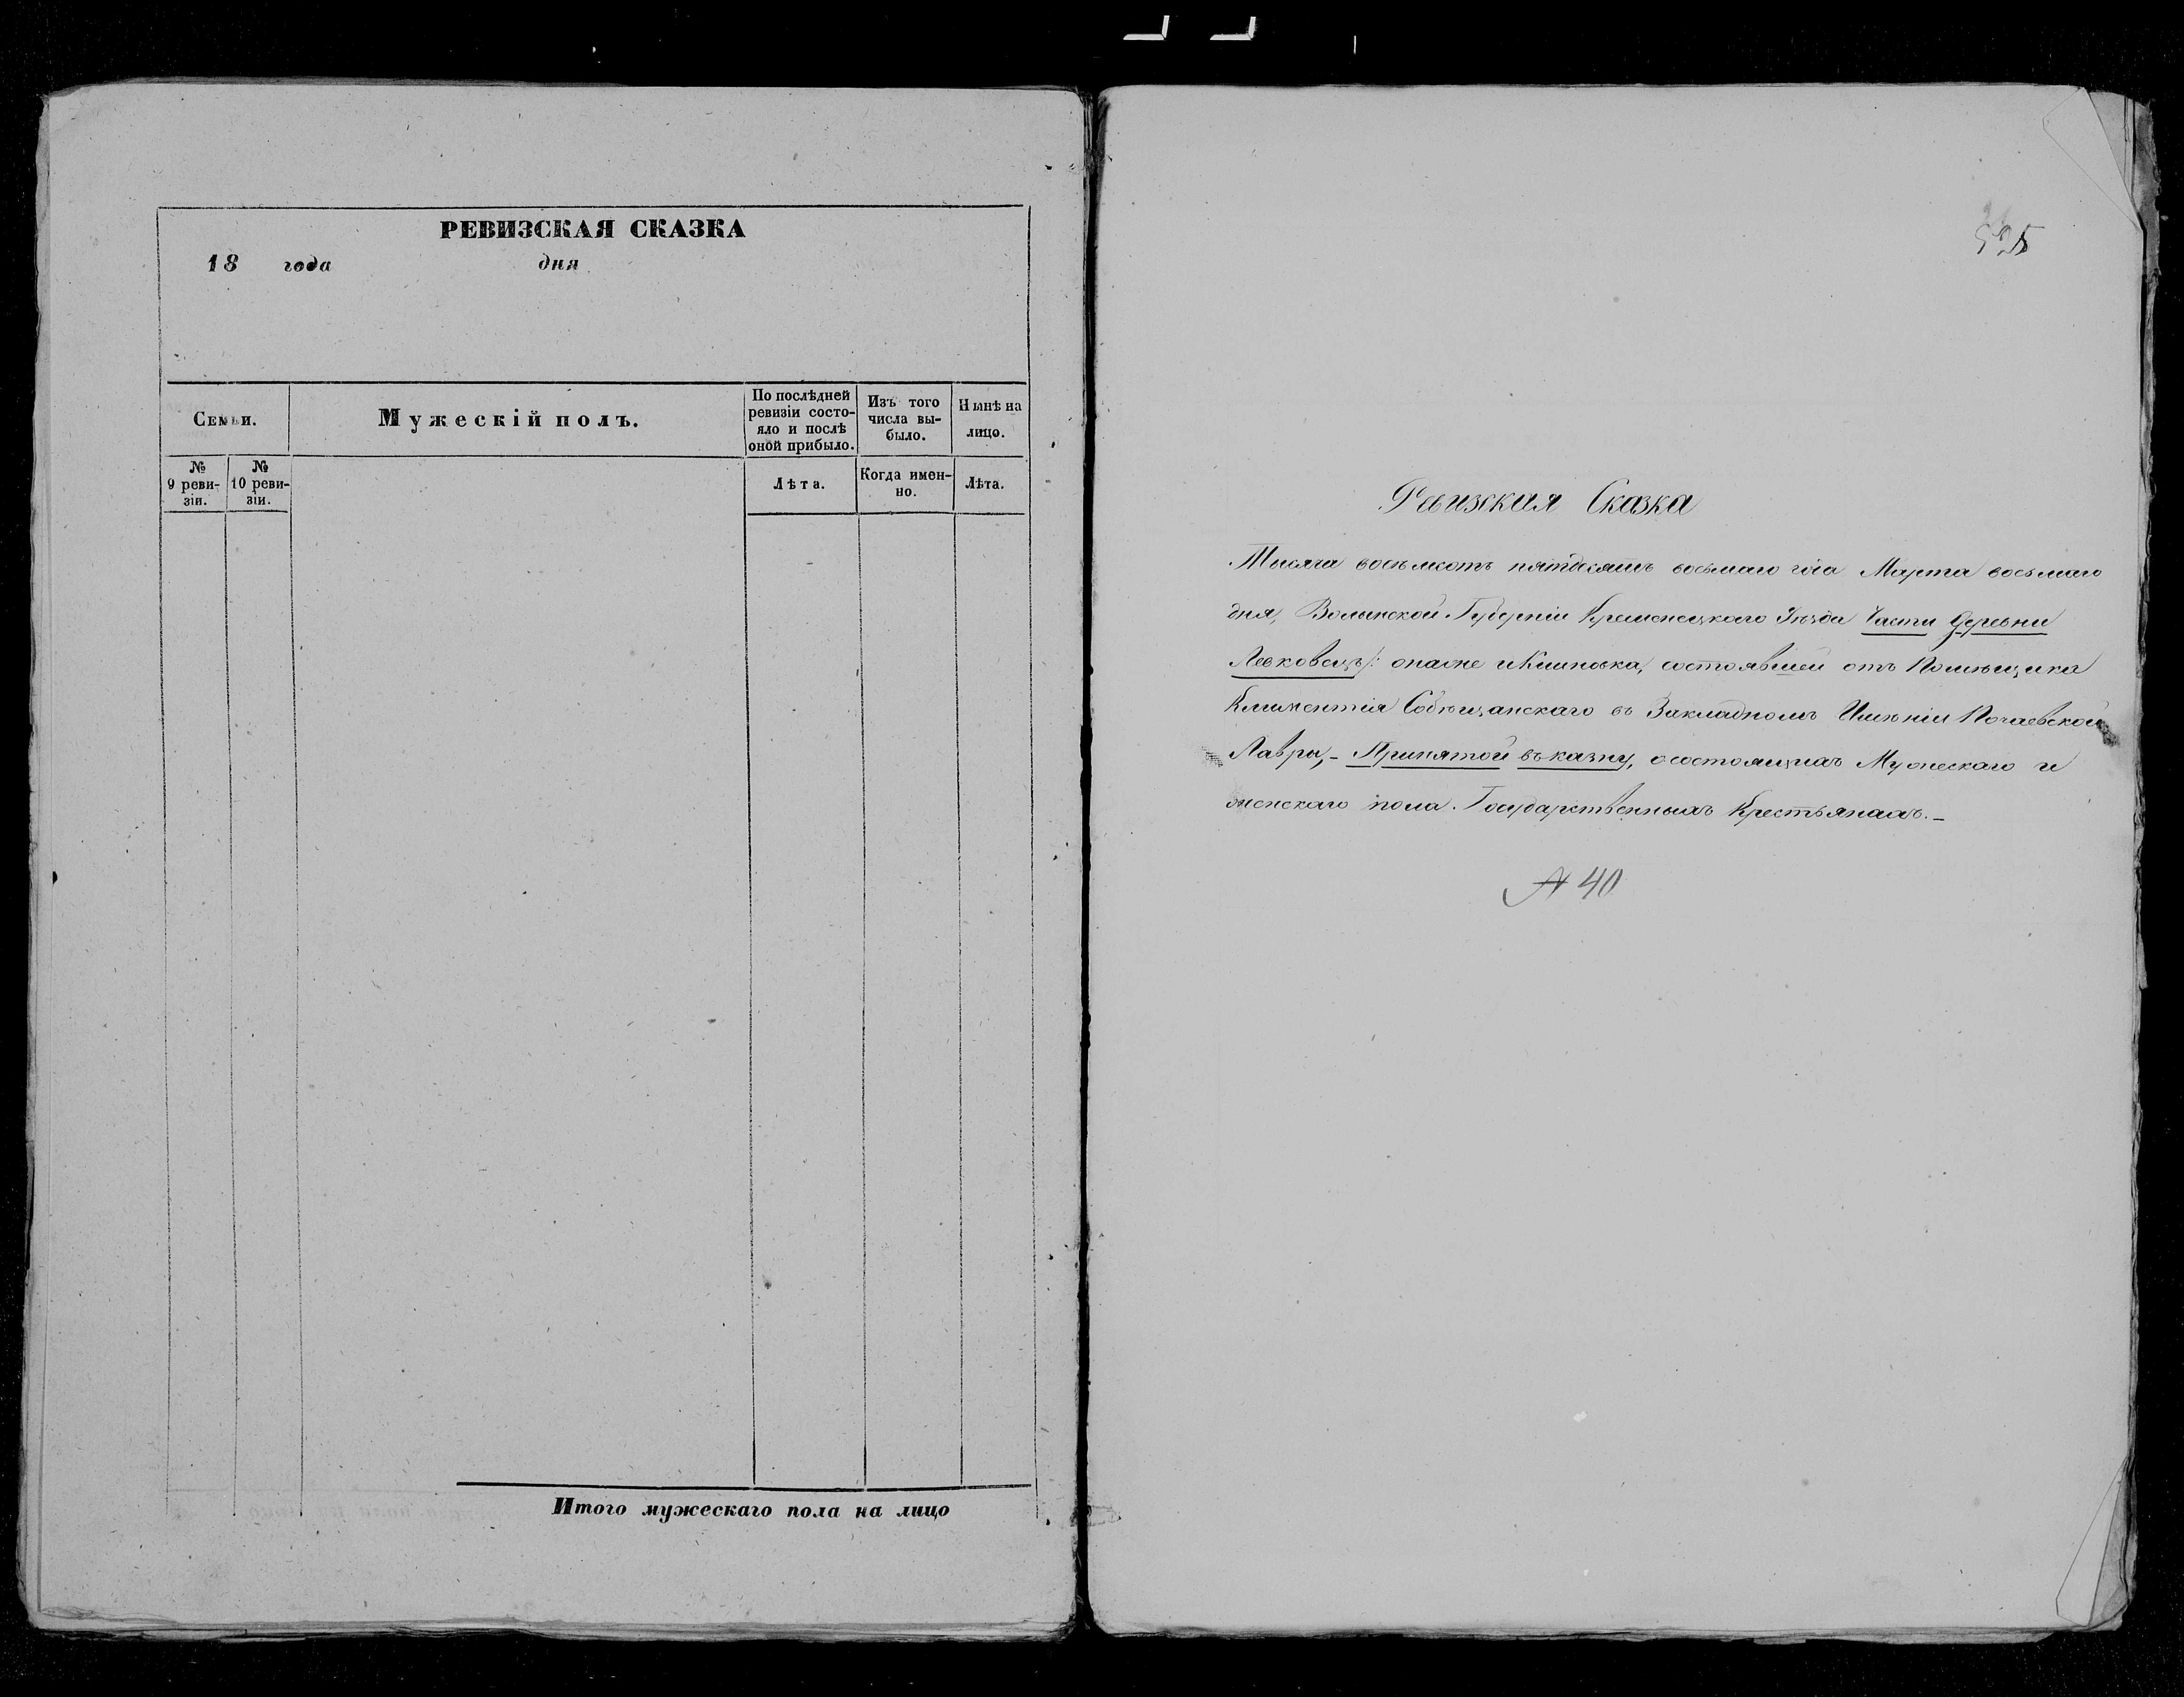 РЕВИЗСКАЯ СКАЗКА
18 года дня
Семьи.
Мужескій полъ.
По послѣдней
ревизіи состо-
яло и послѣ
оной прибыло.
Изъ того
числа вы-
было.
Нынѣ на
лицо.
№
9 реви-
зіи.
№
10 реви-
зіи.
Лѣта.
Когда имен-
но.
Лѣта.
Итого мужескаго пола на лицо
Ревизская Сказка
Тысяча восемсотъ пятдесятъ восьмаго года Марта восьмаго
дня, Волынской Губерніи Кременецкаго Уѣзда Части Деревни
Левковецъ /: состоявшей отъ Помѣщика
Климентія Собѣщанскаго въ Закладномъ Имѣніи Почаевской
Лавры,- Принятой въ казну, о состоящихъ Мужескаго и
женскаго пола. Государственныхъ Крестьянахъ.-
№ 40